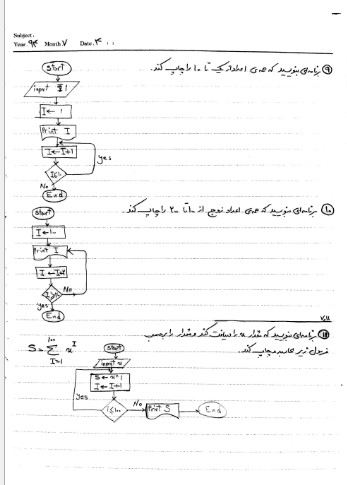 Subject:
Year. 94 Month. 7 Date. 4
۹) برنامه‌ای بنویسید که همه‌ی اعداد یک تا ۱۰ را چاپ کند.
Start
input I
I ← 1
Print I
I ← I+1
yes
No
End
۱۰) برنامه‌ای بنویسید که همه‌ی اعداد زوج از ۱۰ تا ۲۰ را چاپ کند.
Start
I ← 10
Print I
I ← I+2
No
yes
End
برنامه‌ای بنویسید که مقدار x را دریافت کند و مقدار را برحسب
فرمول زیر محاسبه و چاپ کند.
Start
input x
I ← I+1
yes
No
Print S
End